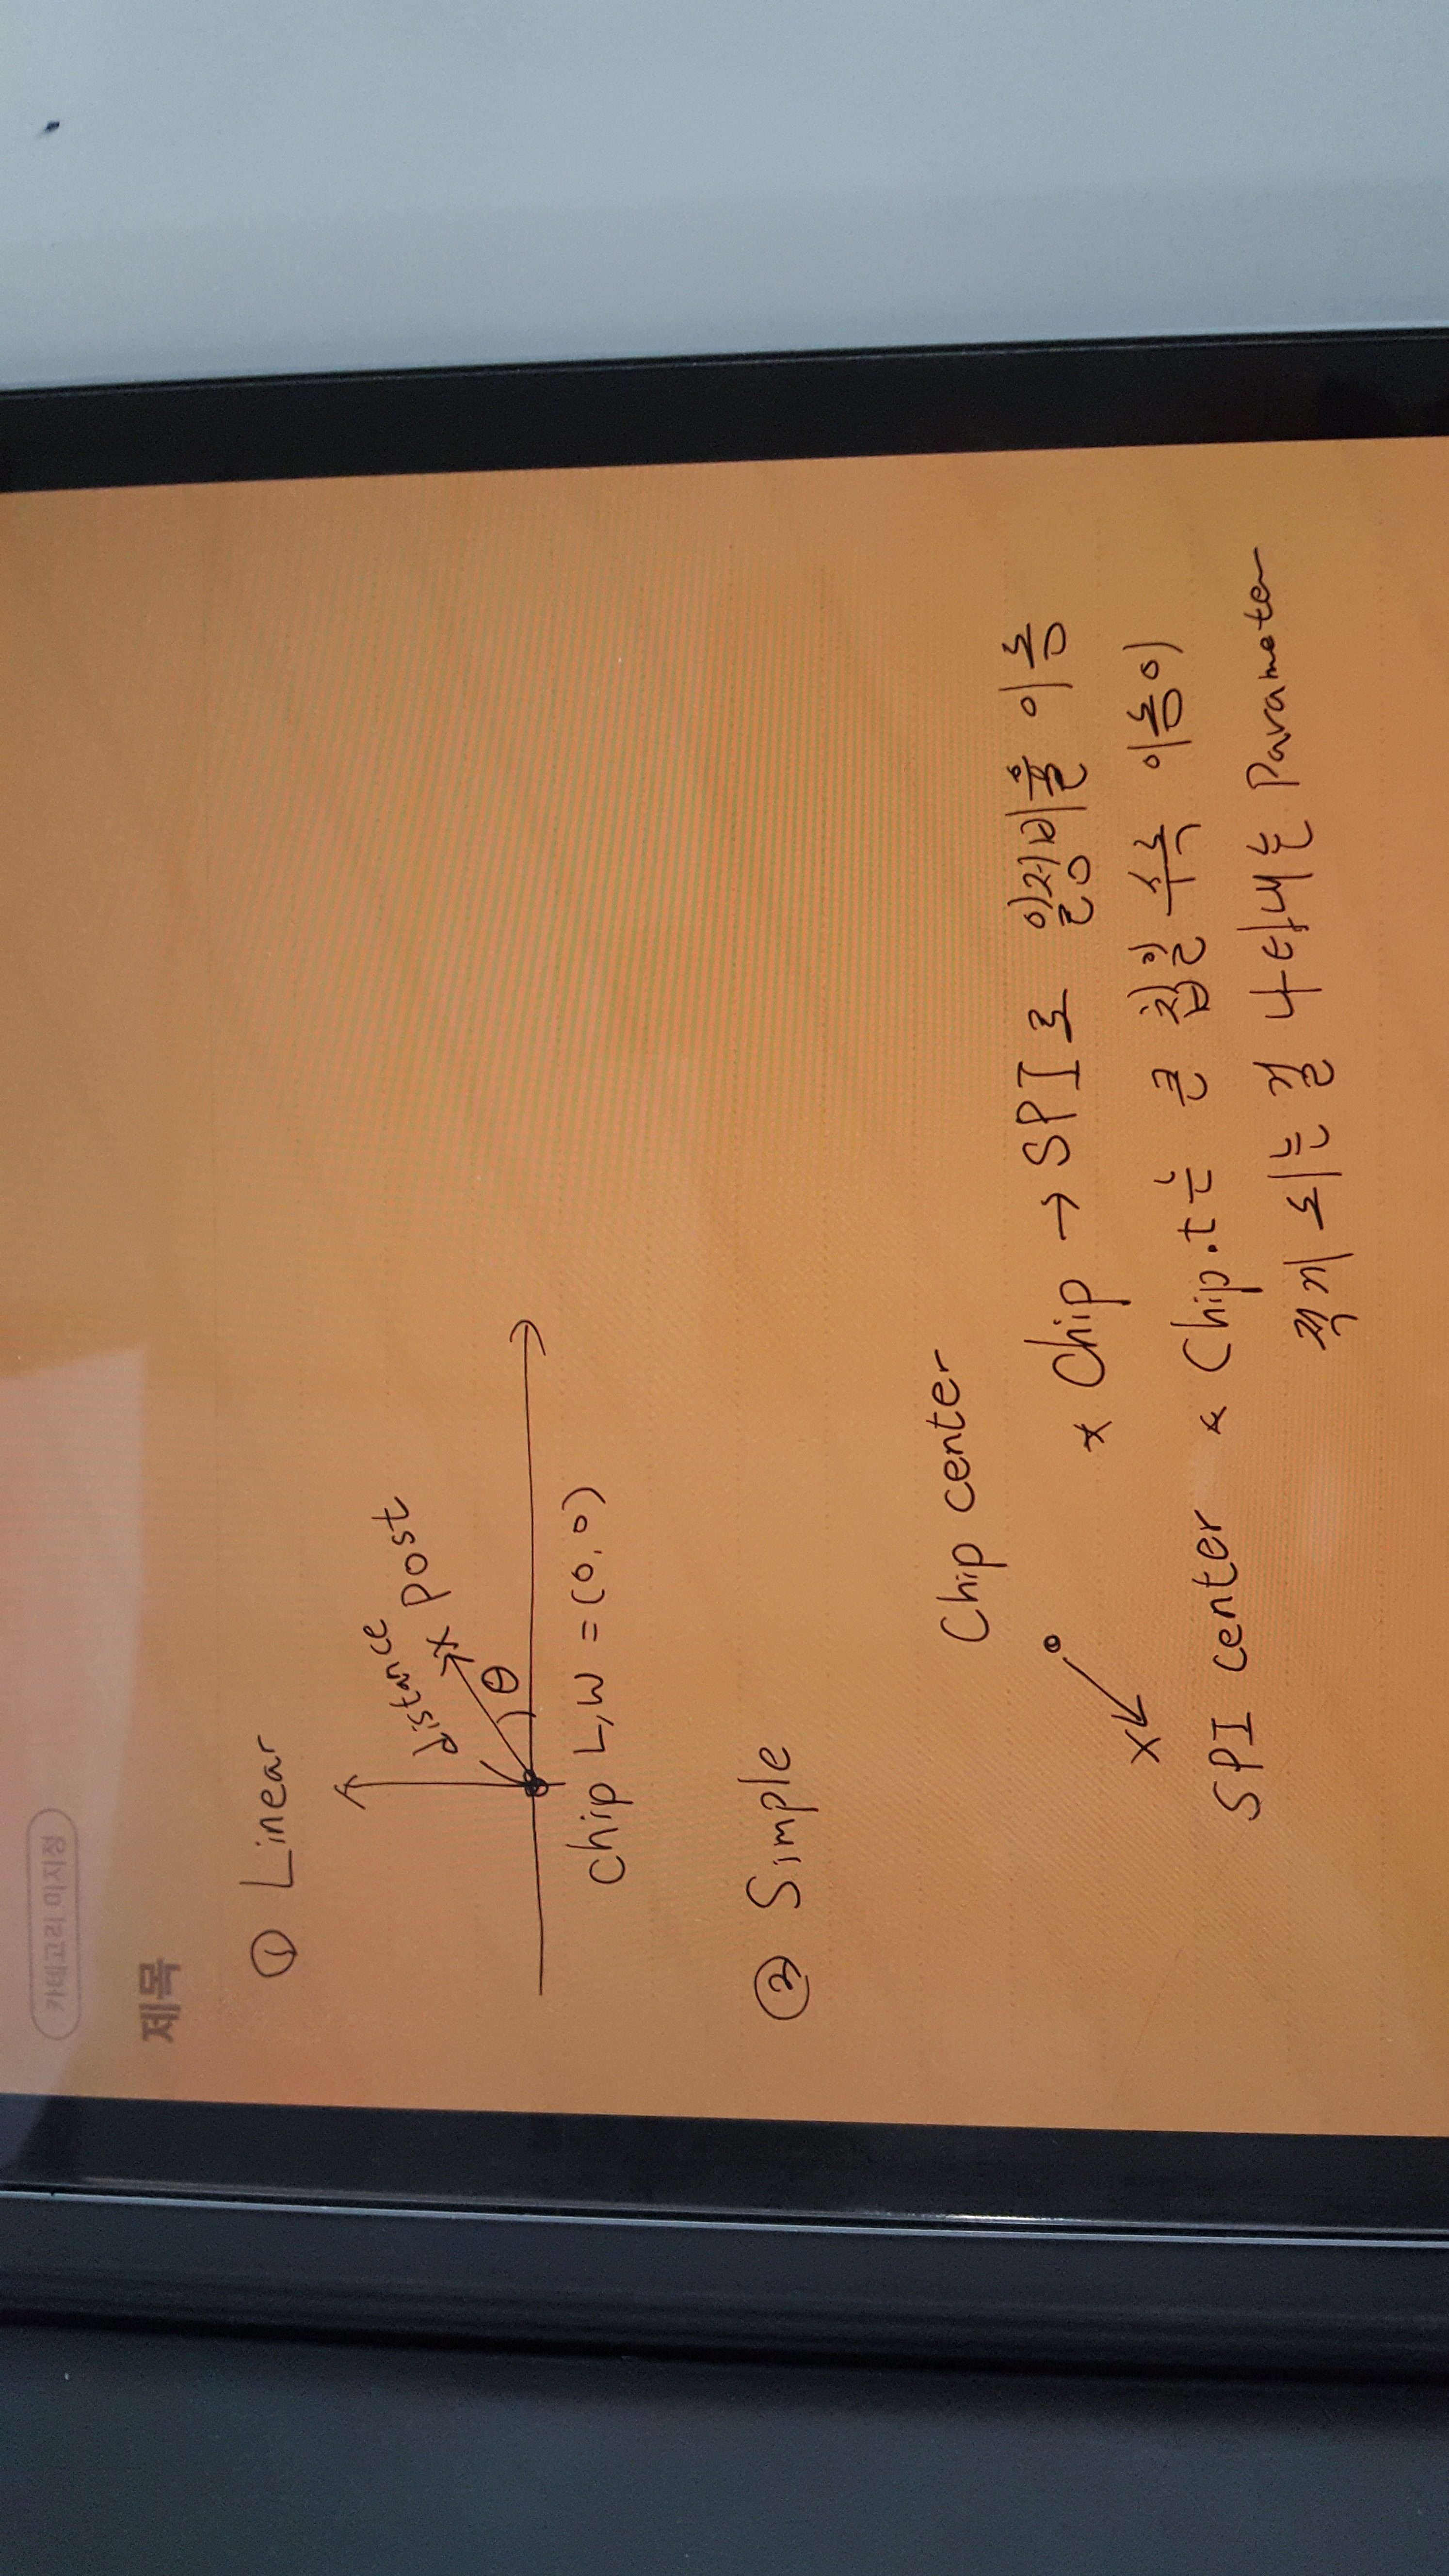 카테고리 미지정
제목
① Linear
distance
x Post
θ
Chip L,W = (0,0)
② Simple
Chip center
* Chip → SPI로 일정비율 이동
x
SPI center
* Chip.t는 큰 칩일 수록 이동이
적게 되는 걸 나타내는 Parameter